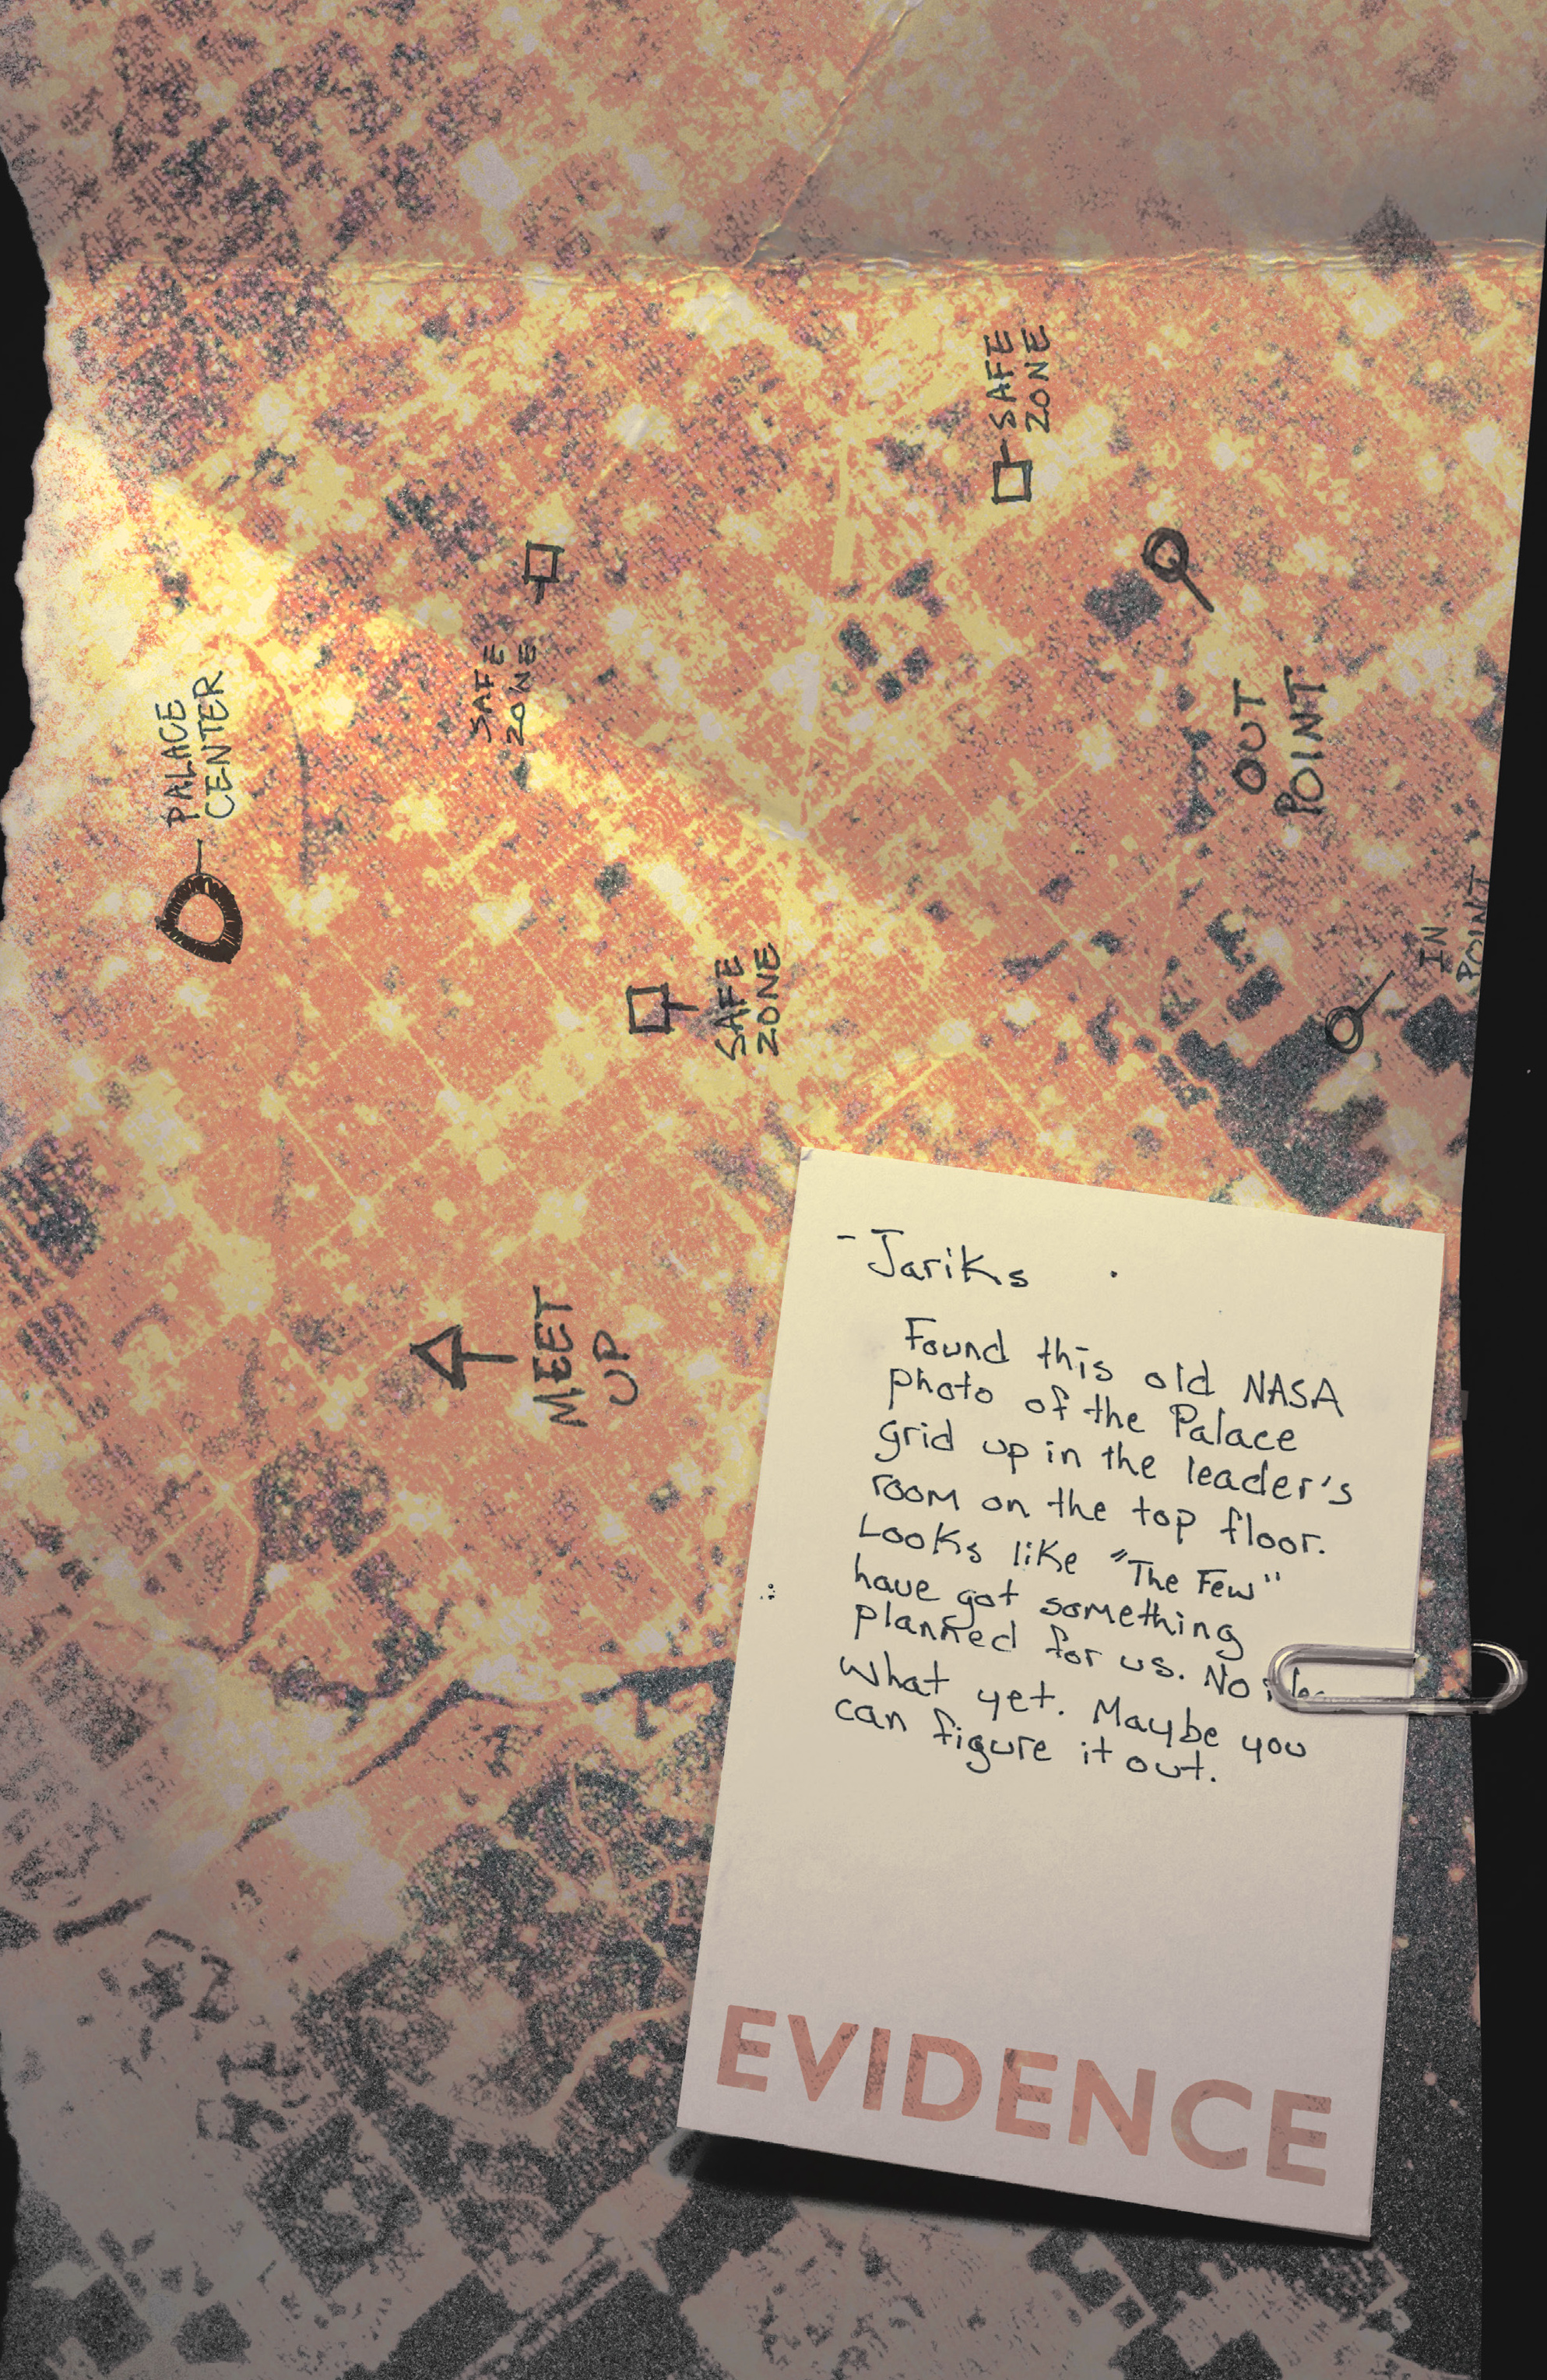 SAFE
ZONE
SAFE
ZONE
PALACE
CENTER
OUT
POINT
IN
POINT
SAFE
ZONE
MEET
UP
- Jariks
Found this old NASA
photo of the Palace
grid up in the leader's
room on the top floor.
Looks like "The Few"
have got something
planned for us. No
what yet. Maybe you
can figure it out.
EVIDENCE